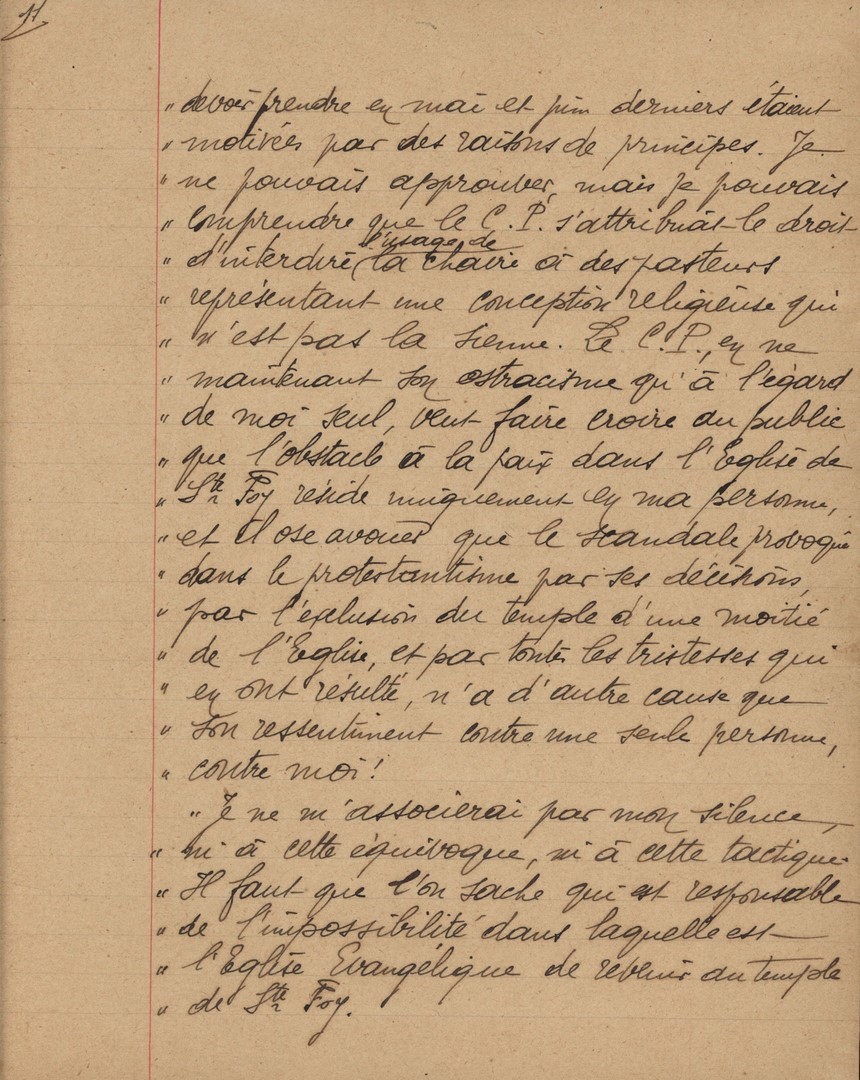 11
" devoir prendre en mai et juin derniers étaient
" motivées par des raisons de principes. Je
" ne pouvais approuver, mais je pouvais
" comprendre que le C. P. s'attribuât le droit
l'usage de
" d'interdire (la chaire à des pasteurs
" représentant une conception religieuse qui
" n'est pas la sienne. Le C. P., en ne
" maintenant son ostracisme qu'à l'égard
" de moi seul, veut faire croire au public
" que l'obstacle à la paix dans l'Eglise de
" Ste Foy réside uniquement en ma personne,
" et il ose avouer que le scandale provoqué
" dans le protestantisme par ses décisions,
" par l'exclusion du temple d'une moitié
" de l'Eglise, et par toutes les tristesses qui
" en ont résulté, n'a d'autre cause que
" son ressentiment contre une seule personne,
" contre moi !
" Je ne m'associerai par mon silence,
" ni à cette équivoque, ni à cette tactique.
" Il faut que l'on sache qui est responsable
" de l'impossibilité dans laquelle est
" l'Eglise Evangélique de revenir au temple
" de Ste Foy.